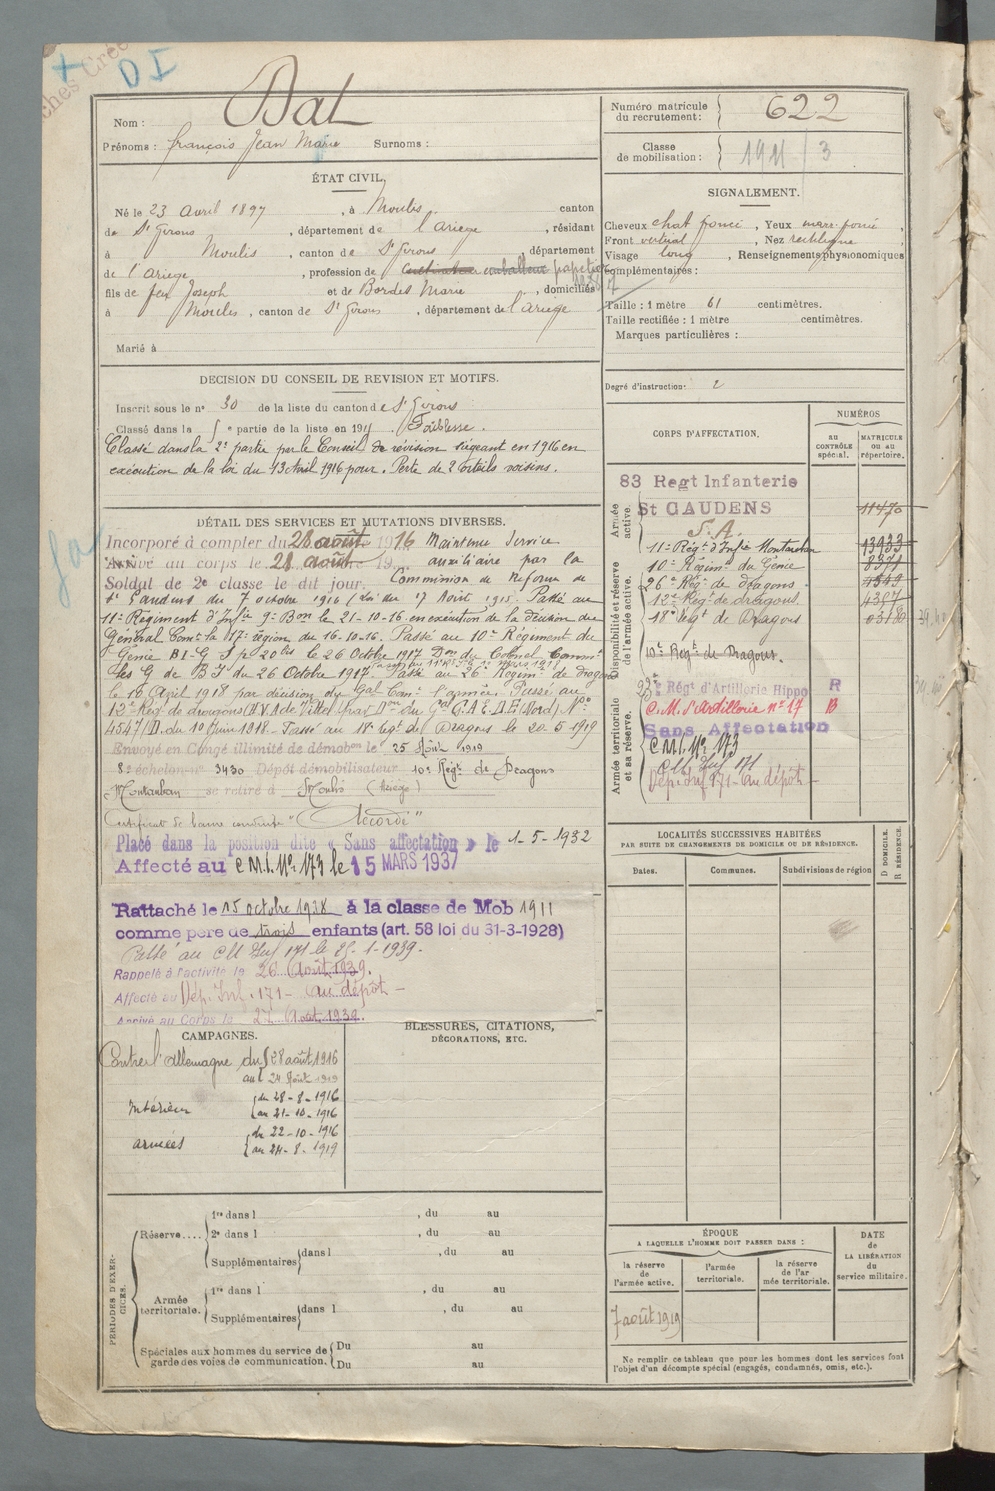 + DI
Nom : Dat
Prénoms : François Jean Marie Surnoms :
Numéro matricule du recrutement : 622
Classe de mobilisation : 1911/3
ÉTAT CIVIL.
Né le 23 avril 1897, à Moulis canton
de St Girons, département de l'ariege, résidant
à Moulis, canton de St Girons département
de l'ariege, profession de
fils de feu Joseph et de Bordes Marie, domiciliés
à Moulis, canton de St Girons, département de l'ariege
Marié à
SIGNALEMENT.
Cheveux chat foncé, Yeux marr. foncé,
Front vertical, Nez rectiligne
Visage long, Renseignements physionomiques
complémentaires :
Taille : 1 mètre 61 centimètres.
Taille rectifiée : 1 mètre centimètres.
Marques particulières :
Degré d'instruction : 2
DECISION DU CONSEIL DE REVISION ET MOTIFS.
Inscrit sous le n° 30 de la liste du canton de St Girons
Classé dans la 5e partie de la liste en 191 Faiblesse.
Classé dans la 2e partie par le Conseil de révision siégeant en 1916 en
exécution de la loi du 13 Avril 1916 pour. Perte de 2 orteils voisins.
DÉTAIL DES SERVICES ET MUTATIONS DIVERSES.
Incorporé à compter du 28 août 1916 Maintenu Service
Arrivé au corps le 28 août 19 auxiliaire par la
Soldat de 2e classe le dit jour. Commission de Réforme de
St Gaudens du 7 octobre 1916 (Loi du 17 Aout 1915. Passé au
11e Régiment d'Infie 9e Bon le 21-10-16 en exécution de la décision du
Général Comt la 17e région du 16-10-16. Passé au 10e Régiment du
Génie le 26 Octobre 1917 Don du Colonel Commt
les G de BI du 26 Octobre 1917. Passé au 26e Régim. de Dragons
le 16 April 1918 par décision du Gal Com. l'armée. Passé au
12e Rég. de dragons
4547/D. du 10 Juin 1918. Passé au 18e Regt de Dragons le 20 5 1919
Envoyé en Congé illimité de démobon le 25 Août 1919
8e échelon n° 3430 Dépôt démobilisateur 10e Régt de Dragons
Montauban se retire à Moulis (Ariège)
Certificat de bonne conduite "Accordé"
Placé dans la position dite « Sans affectation » le 1-5-1932
Affecté au C.M.I. N° 173 le 15 MARS 1937
Rattaché le 15 octobre 1938 à la classe de Mob 1911
comme père de trois enfants (art. 58 loi du 31-3-1928)
Passé au CM Inf 171 le 25-1-1939.
Rappelé à l'activité le 26 Août 1939.
Affecté au Dép. Inf. 171 - au dépôt -
Arrivé au Corps le 27 Août 1939.
CORPS D'AFFECTATION,
NUMÉROS
au CONTRÔLE spécial.
MATRICULE ou au répertoire.
Armée active.
83 Regt Infanterie
St GAUDENS
S. A.
11470
Disponibilité et réserve de l'armée active.
11e Régt d'Infie Montauban 13933
10e Régim. du Génie 8371
26e Rég. de dragons 4849
12e Régt de dragons. 4357
18e Regt de Dragons
10e Regt de Dragons.
Armée territoriale et sa réserve.
Régt d'Artillerie Hippo R
C.M. d'Artillerie n° 17 B
Sans Affectation
C.M.I. N° 173
CM Inf 171
Dép. Inf 171 - au dépôt -
LOCALITÉS SUCCESSIVES HABITÉES
PAR SUITE DE CHANGEMENTS DE DOMICILE OU DE RÉSIDENCE.
Dates. Communes. Subdivisions de région D DOMICILE. R RÉSIDENCE.
CAMPAGNES.
Contre l'Allemagne du 28 août 1916
au 24 Août 1919
Intérieur du 28-8-1916
au 21-10-1916
armées du 22-10-1916
au 24-8-1919
BLESSURES, CITATIONS,
DÉCORATIONS, ETC.
PÉRIODES D'EXERCICES.
Réserve.... 1re dans l , du au
2e dans l , du au
Supplémentaires dans l , du au
Armée territoriale. 1re dans l , du au
Supplémentaires dans l , du au
Spéciales aux hommes du service de garde des voies de communication. Du au
Du au
ÉPOQUE
A LAQUELLE L'HOMME DOIT PASSER DANS :
la réserve de l'armée active.
l'armée territoriale.
la réserve de l'armée territoriale.
DATE de LA LIBÉRATION du service militaire.
7 août 1919
Ne remplir ce tableau que pour les hommes dont les services font
l'objet d'un décompte spécial (engagés, condamnés, omis, etc.).